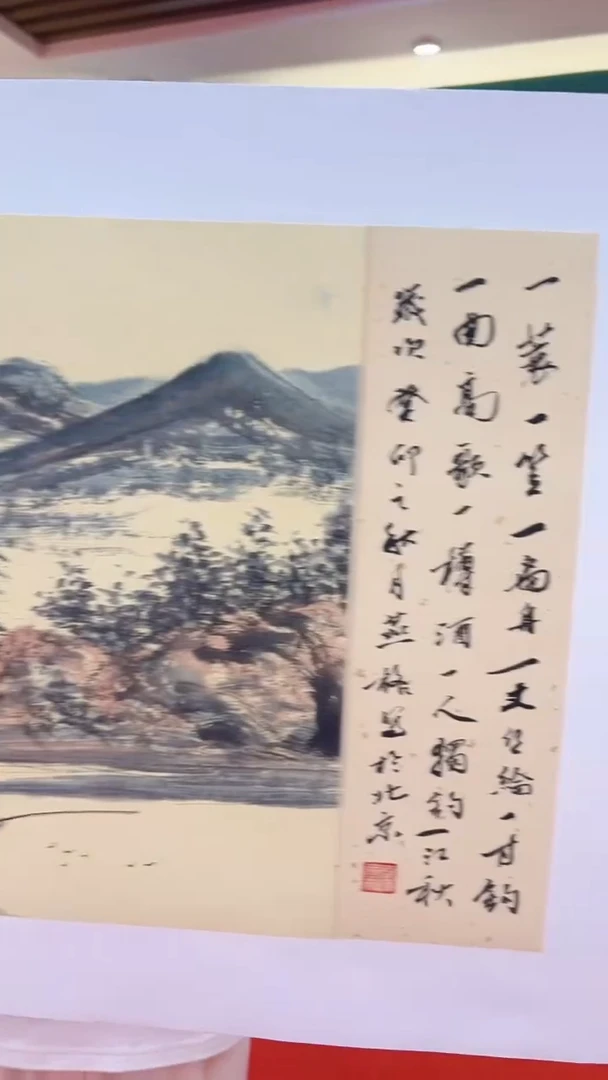 一蓑一笠一扁舟一丈丝綸一寸鈎
一曲高歌一樽酒一人獨釣一江秋
歲次癸卯之秋月燕写於北京